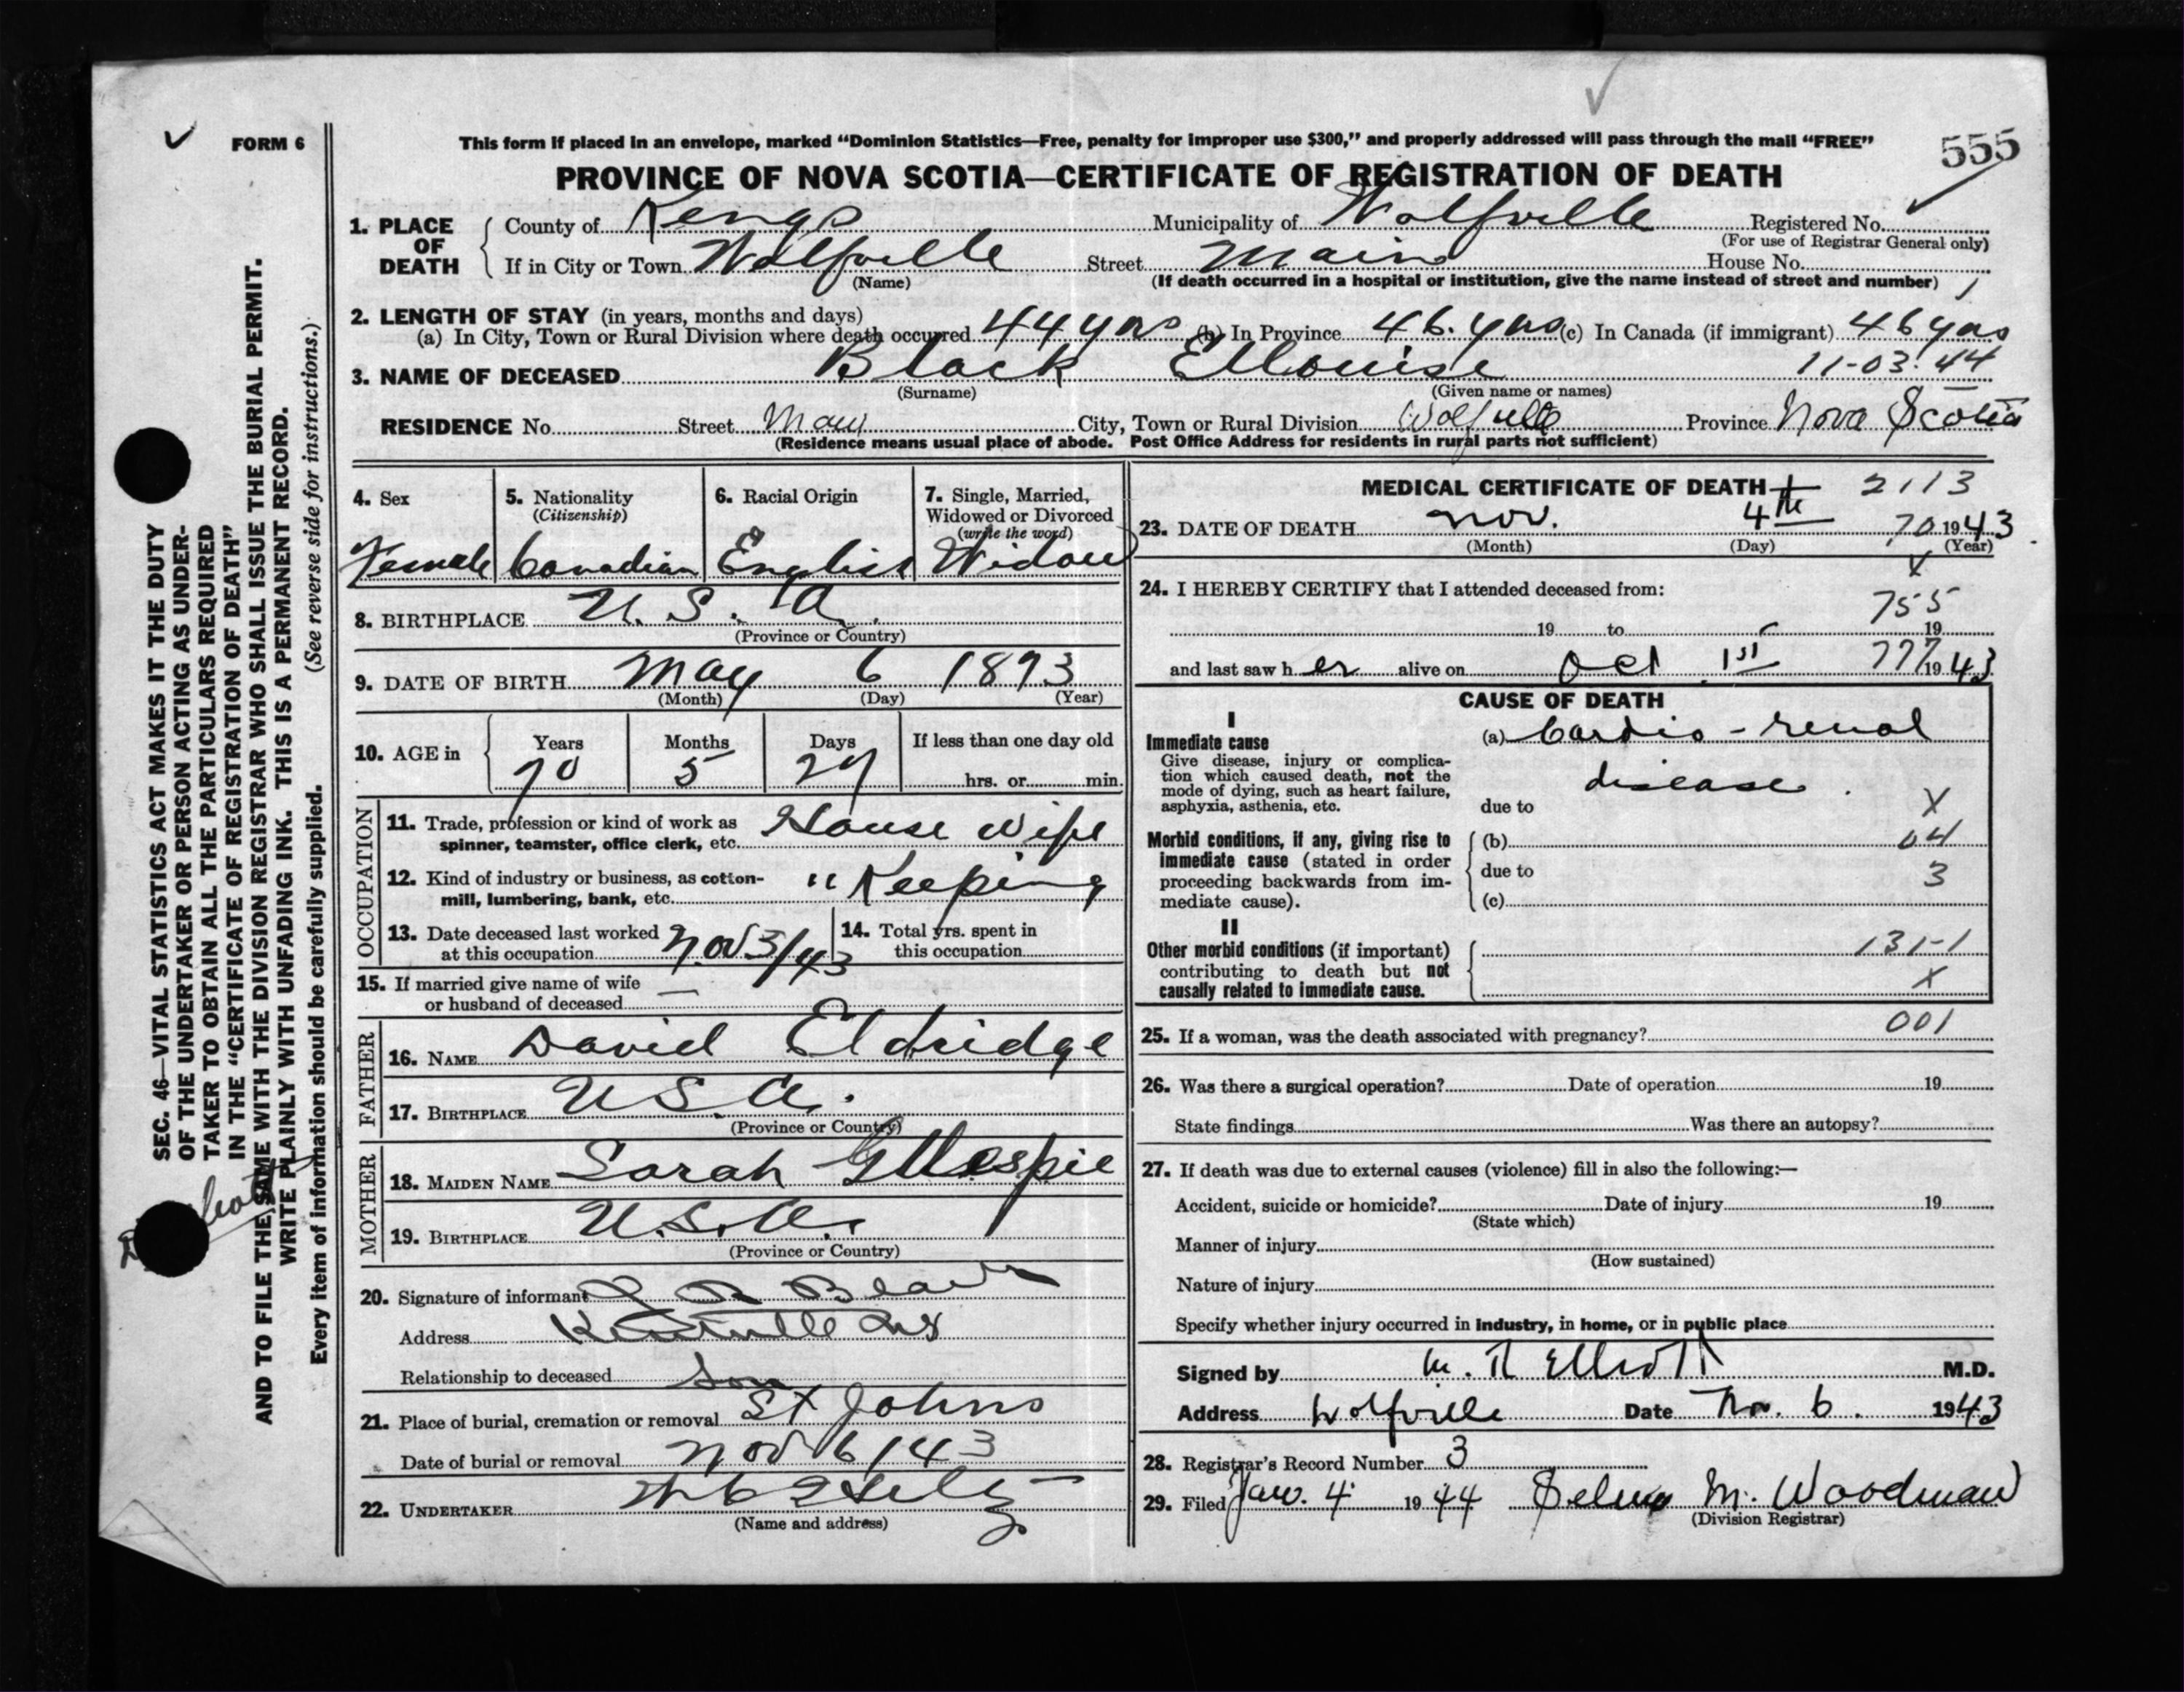 ✓ FORM 6
This form if placed in an envelope, marked "Dominion Statistics—Free, penalty for improper use $300," and properly addressed will pass through the mail "FREE"
555
PROVINCE OF NOVA SCOTIA—CERTIFICATE OF REGISTRATION OF DEATH
1. PLACE OF DEATH
County of Kings Municipality of Wolfville Registered No.
(For use of Registrar General only)
If in City or Town Wolfville Street Main House No.
(Name) (If death occurred in a hospital or institution, give the name instead of street and number) 1
2. LENGTH OF STAY (in years, months and days)
(a) In City, Town or Rural Division where death occurred 44 yrs (b) In Province 46. yrs (c) In Canada (if immigrant) 46 yrs
3. NAME OF DECEASED Black Ellouise 11-03.44
(Surname) (Given name or names)
RESIDENCE No. Street Main City, Town or Rural Division Wolfville Province Nova Scotia
(Residence means usual place of abode. Post Office Address for residents in rural parts not sufficient)
4. Sex
Female
5. Nationality
(Citizenship)
Canadian
6. Racial Origin
English
7. Single, Married,
Widowed or Divorced
(write the word)
Widow
8. BIRTHPLACE U. S. A.
(Province or Country)
9. DATE OF BIRTH May 6 1873
(Month) (Day) (Year)
10. AGE in Years Months Days If less than one day old
70 5 29 hrs. or min.
OCCUPATION
11. Trade, profession or kind of work as
spinner, teamster, office clerk, etc. House Wife
12. Kind of industry or business, as cotton-
mill, lumbering, bank, etc. " Keeping
13. Date deceased last worked
at this occupation Nov 3/43
14. Total yrs. spent in
this occupation
15. If married give name of wife
or husband of deceased —
FATHER
16. NAME David Eldridge
17. BIRTHPLACE U S. A.
(Province or Country)
MOTHER
18. MAIDEN NAME Sarah Gillespie
19. BIRTHPLACE U.S.A.
(Province or Country)
20. Signature of informant Black
Address Kentville NS
Relationship to deceased Son
21. Place of burial, cremation or removal St Johns
Date of burial or removal Nov 6/43
22. UNDERTAKER
(Name and address)
MEDICAL CERTIFICATE OF DEATH 2113
23. DATE OF DEATH Nov. 4th 70 1943
(Month) (Day) (Year)
x
24. I HEREBY CERTIFY that I attended deceased from:
755
19 to 19
and last saw her alive on Oct 1st 777 1943
CAUSE OF DEATH
I
Immediate cause
Give disease, injury or complica-
tion which caused death, not the
mode of dying, such as heart failure,
asphyxia, asthenia, etc.
(a) Cardio-renal
disease.
due to X
Morbid conditions, if any, giving rise to
immediate cause (stated in order
proceeding backwards from im-
mediate cause).
(b) 04
due to 3
(c)
II
Other morbid conditions (if important)
contributing to death but not
causally related to immediate cause.
131-1
x
25. If a woman, was the death associated with pregnancy? 001
26. Was there a surgical operation? Date of operation 19
State findings Was there an autopsy?
27. If death was due to external causes (violence) fill in also the following:—
Accident, suicide or homicide? Date of injury 19
(State which)
Manner of injury
(How sustained)
Nature of injury
Specify whether injury occurred in industry, in home, or in public place
Signed by M. R Elliott M.D.
Address Wolfville Date Nov. 6. 1943
28. Registrar's Record Number 3
29. Filed Jan. 4 1944 Selma M. Woodman
(Division Registrar)
SEC. 46—VITAL STATISTICS ACT MAKES IT THE DUTY
OF THE UNDERTAKER OR PERSON ACTING AS UNDER-
TAKER TO OBTAIN ALL THE PARTICULARS REQUIRED
IN THE "CERTIFICATE OF REGISTRATION OF DEATH"
AND TO FILE THE SAME WITH THE DIVISION REGISTRAR WHO SHALL ISSUE THE BURIAL PERMIT.
WRITE PLAINLY WITH UNFADING INK. THIS IS A PERMANENT RECORD.
Every item of information should be carefully supplied. (See reverse side for instructions.)